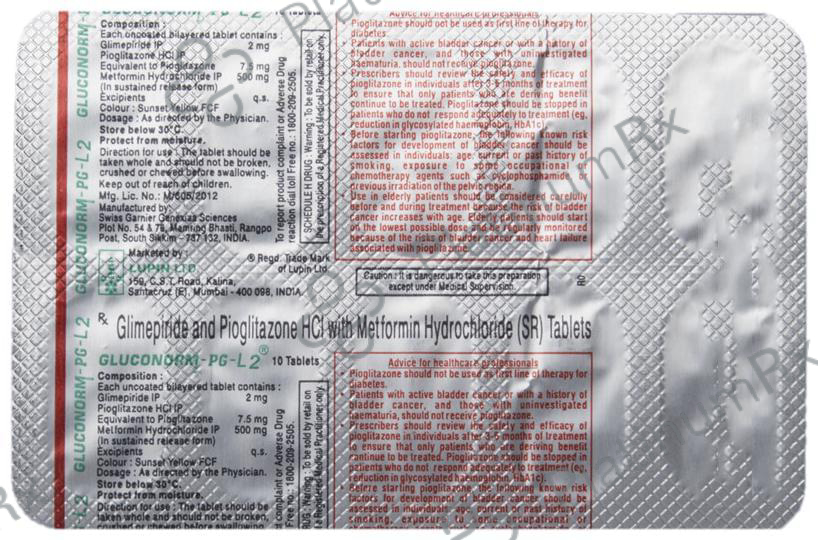 10 Tablets
GLUCONORM-PG-L2
Composition :
Each uncoated bilayered tablet contains :
Glimepiride IP 2 mg
Pioglitazone HCl IP
Equivalent to Pioglitazone 7.5 mg
Metformin Hydrochloride IP 500 mg
(In sustained release form)
Excipients q.s.
Colour : Sunset Yellow FCF
Dosage : As directed by the Physician.
Store below 30°C.
Protect from moisture.
Direction for use : The tablet should be
taken whole and should not be broken,
crushed or chewed before swallowing.
Keep out of reach of children.
Mfg. Lic. No.: M/605/2012
Manufactured by:
Swiss Garnier Genexiaa Sciences
Plot No. 54 & 78, Mamring Bhasti, Rangpo
Post, South Sikkim - 737 132, INDIA.
Marketed by :
LUPIN LTD
159, C.S.T. Road, Kalina,
Santacruz (E), Mumbai - 400 098, INDIA.
® Regd. Trade Mark
of Lupin Ltd.
To report product complaint or Adverse Drug
reaction dial toll Free no.: 1800-209-2505.
SCHEDULE H DRUG - Warning : To be sold by retail on
the prescription of a Registered Medical Practitioner only.
Advice for healthcare professionals
• Pioglitazone should not be used as first line of therapy for
diabetes.
• Patients with active bladder cancer or with a history of
bladder cancer, and those with uninvestigated
haematuria, should not receive pioglitazone.
• Prescribers should review the safety and efficacy of
pioglitazone in individuals after 3-6 months of treatment
to ensure that only patients who are deriving benefit
continue to be treated. Pioglitazone should be stopped in
patients who do not respond adequately to treatment (eg,
reduction in glycosylated haemoglobin, HbA1c).
• Before starting pioglitazone, the following known risk
factors for development of bladder cancer should be
assessed in individuals: age, current or past history of
smoking, exposure to some occupational or
chemotherapy agents such as cyclophosphamide or
previous irradiation of the pelvic region.
• Use in elderly patients should be considered carefully
before and during treatment because the risk of bladder
cancer increases with age. Elderly patients should start
on the lowest possible dose and be regularly monitored
because of the risks of bladder cancer and heart failure
associated with pioglitazone.
Caution : It is dangerous to take this preparation
except under Medical Supervision.
R0
GLUCONORM-PG-L2
Rx Glimepiride and Pioglitazone HCl with Metformin Hydrochloride (SR) Tablets
GLUCONORM-PG-L2® 10 Tablets
Composition :
Each uncoated bilayered tablet contains :
Glimepiride IP 2 mg
Pioglitazone HCl IP
Equivalent to Pioglitazone 7.5 mg
Metformin Hydrochloride IP 500 mg
(In sustained release form)
Excipients q.s.
Colour : Sunset Yellow FCF
Dosage : As directed by the Physician.
Store below 30°C.
Protect from moisture.
Direction for use : The tablet should be
taken whole and should not be broken,
crushed or chewed before swallowing
complaint or Adverse Drug
Free no.: 1800-209-2505.
DRUG - Warning : To be sold by retail on
a Registered Medical Practitioner only.
Advice for healthcare professionals
• Pioglitazone should not be used as first line of therapy for
diabetes.
• Patients with active bladder cancer or with a history of
bladder cancer, and those with uninvestigated
haematuria, should not receive pioglitazone.
• Prescribers should review the safety and efficacy of
pioglitazone in individuals after 3-6 months of treatment
to ensure that only patients who are deriving benefit
continue to be treated. Pioglitazone should be stopped in
patients who do not respond adequately to treatment (eg,
reduction in glycosylated haemoglobin, HbA1c).
• Before starting pioglitazone, the following known risk
factors for development of bladder cancer should be
assessed in individuals: age, current or past history of
smoking, exposure to some occupational or